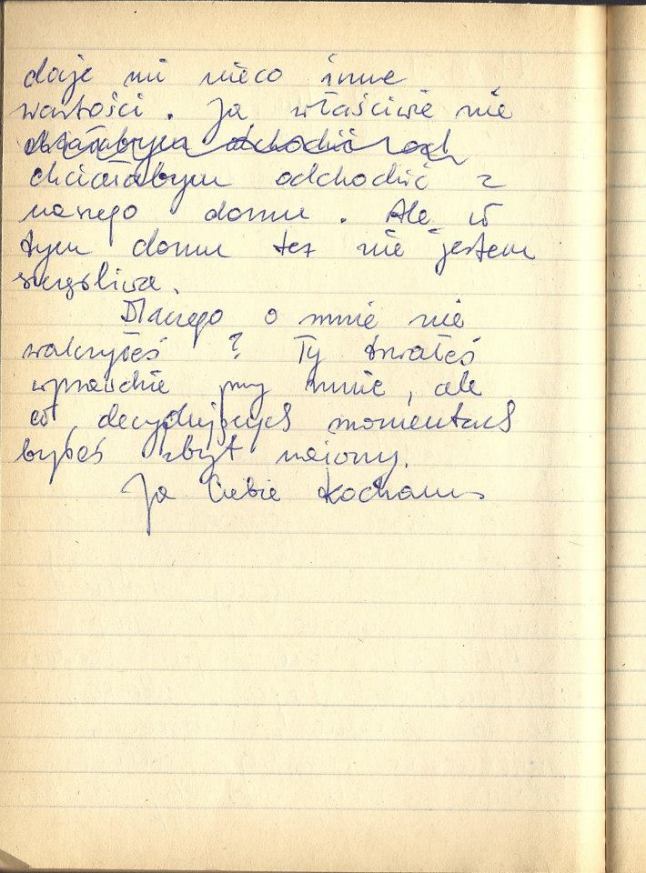 daje mi nieco inne
wartości. Ja właściwie nie
chciałabym odchodzić z
chciałabym odchodzić z
naszego domu. Ale w
tym domu też nie jestem
szczęśliwa.
Dlaczego o mnie nie
walczyłeś? Ty trwałeś
wprawdzie przy mnie, ale
w decydujących momentach
byłeś zbyt
Ja Ciebie kocham